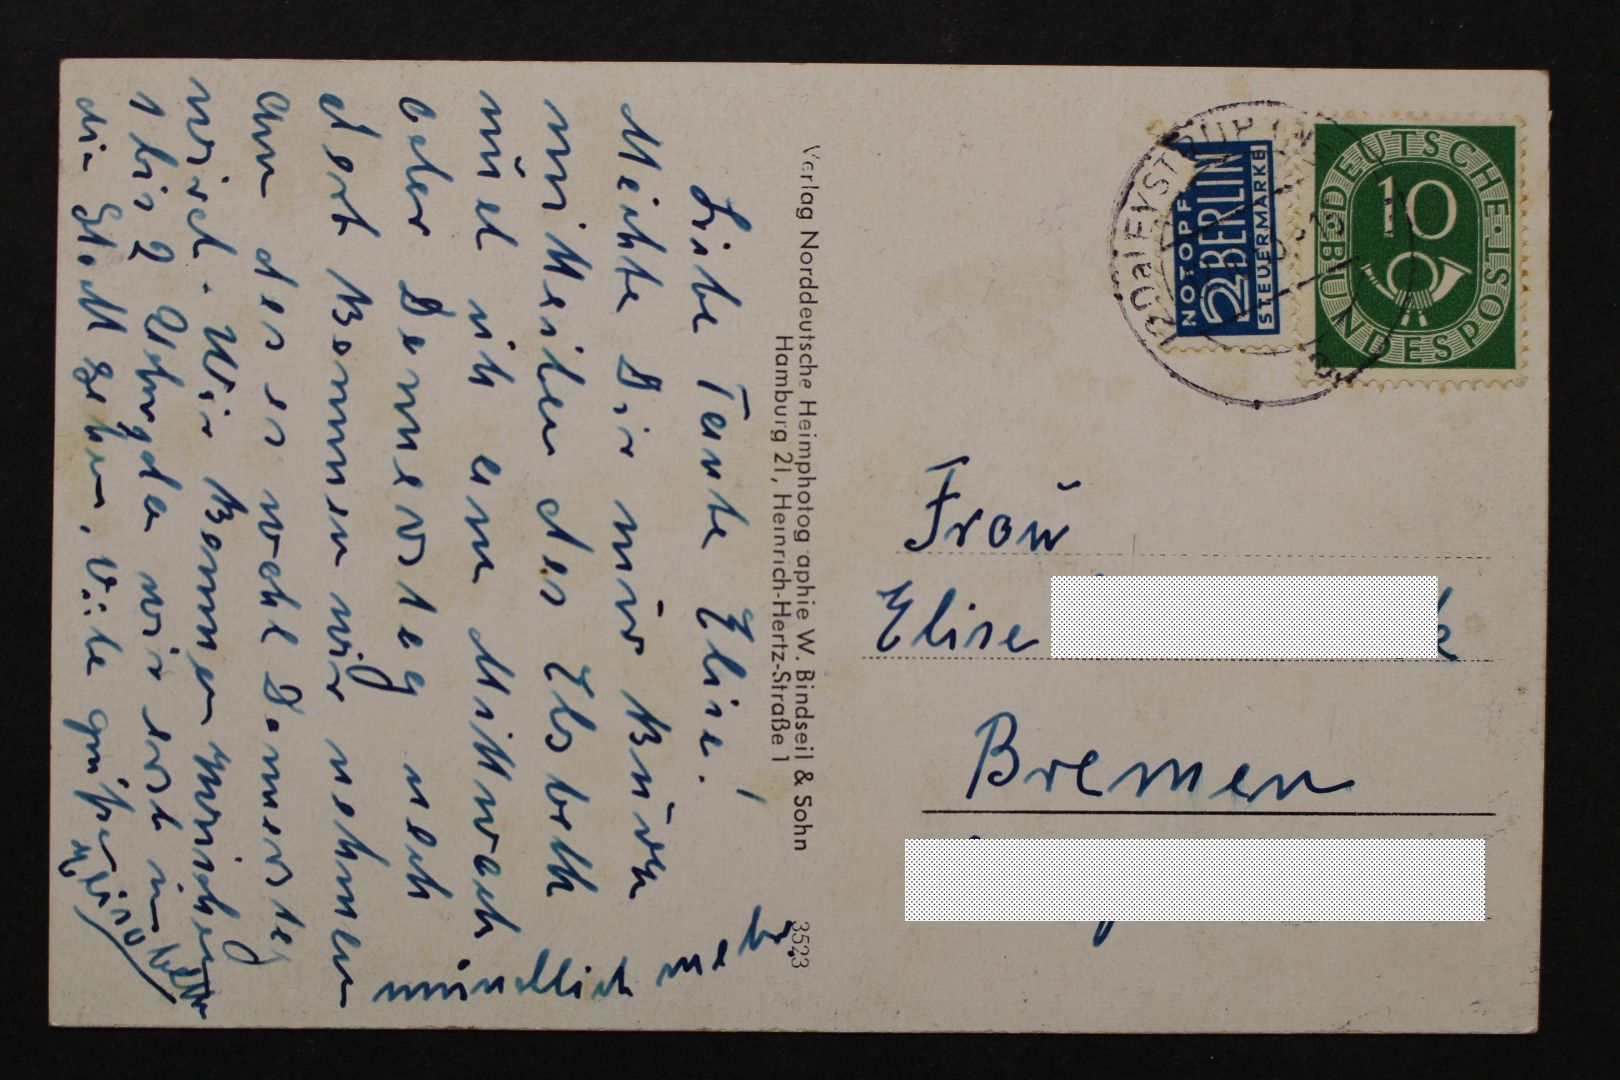 Liebe Tante Elise!
Möchte Dir nur kurz
mitteilen das Elsbeth
und ich am Mittwoch
oder Donnerstag nach
dort kommen wir nehmen
an das es wohl Donnerstag
wird. Wir kommen zwischen
1 bis 2 da wir erst in
die Stadt gehen. Viele grüße
mündlich mehr
Verlag Norddeutsche Heimphotographie W. Bindseil & Sohn
Hamburg 21, Heinrich-Hertz-Straße 1
3523
NOTOPFER
2 BERLIN
STEUERMARKE
DEUTSCHE BUNDESPOST
10
Frau
Elise
Bremen